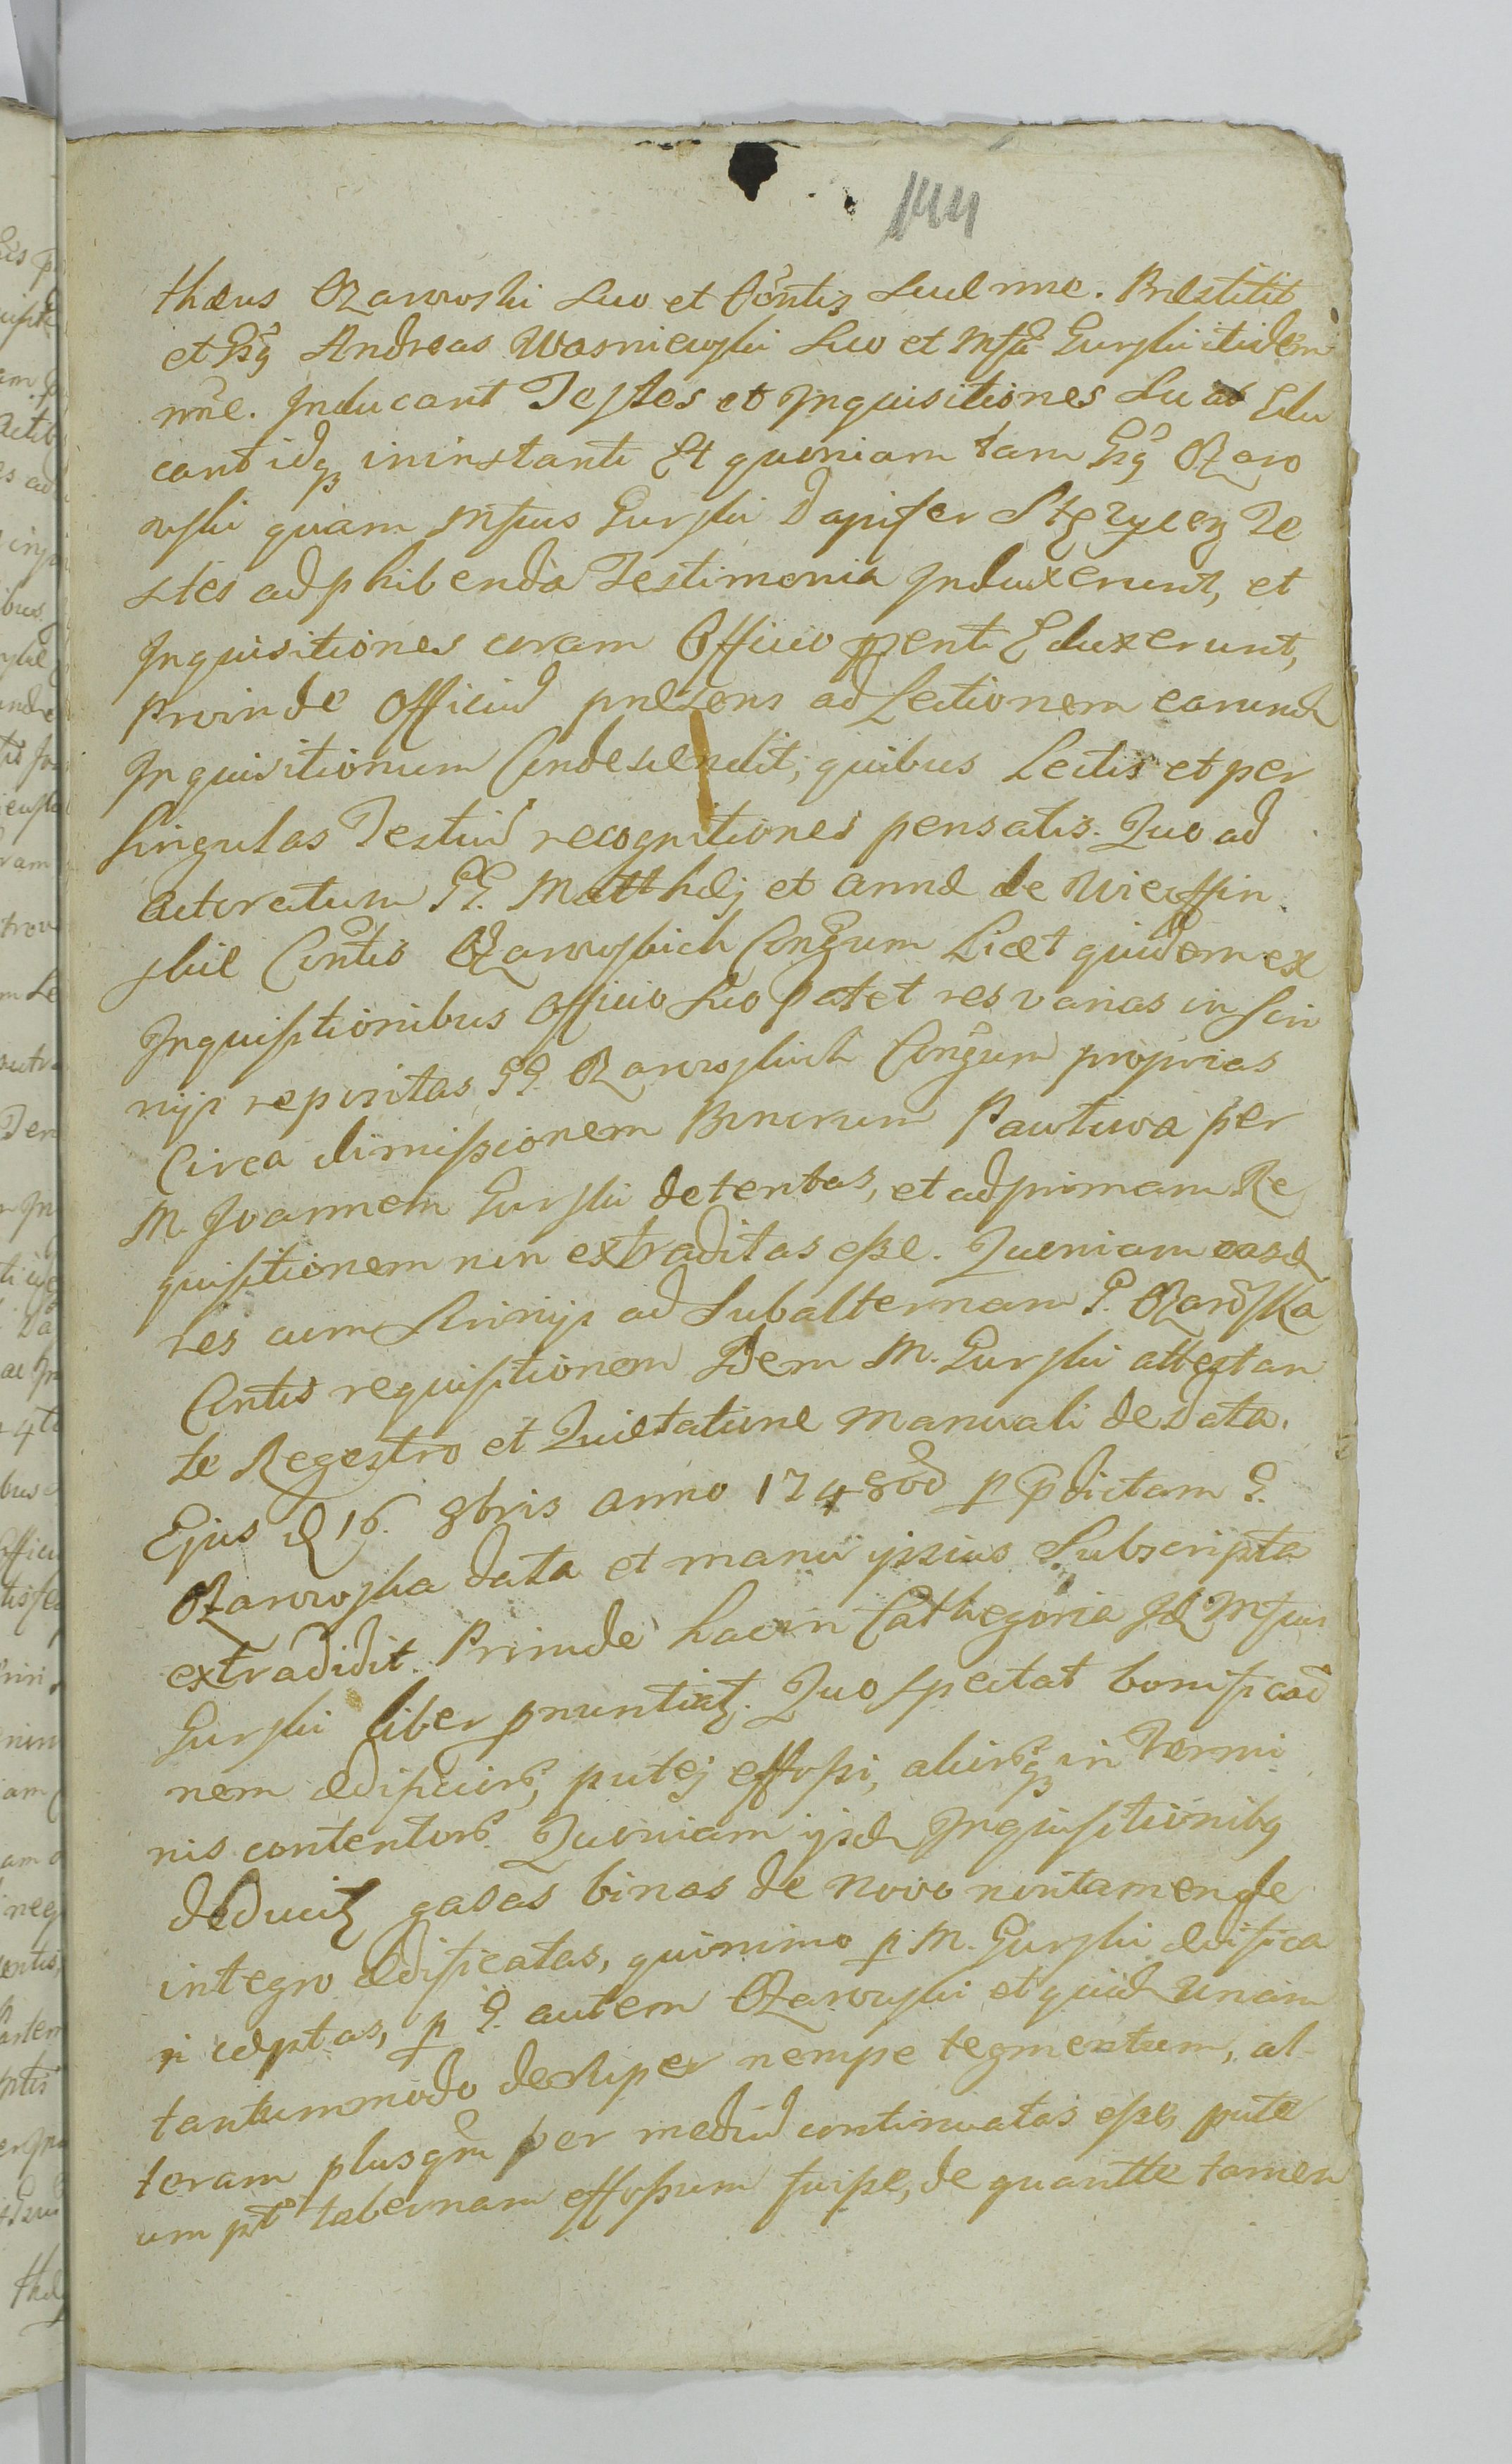 144
thæus Ożarowski suo et Contis suæ nne. Præstitit
et Gsg Andreas Wasniewski suo et Mfci Gurski itidem
nne. Inducant Testes et Inquisitiones suas Edu
cant idq in instanti Et quoniam tam Gsg Ozaro
wski quam Mfcus Gurski Dapifer Stężycen Te
stes ad phibenda Testimonia Induxerunt, et
Inquisitiones coram Officio ppenti Eduxerunt,
proinde Officiū præsens ad Lectionem earund
Inquisitionum Condescendit, quibus Lectis et per
singulas Testiū recognitiones pensatis. Quo ad
actoratum GG. Matthæj et Annæ de
skie Contis Ozarowskich Conjgum Licet quidem ex
Inquisitionibus Officio suo patet res varias in scri
nijs repositas GG. Ozarowskich Conjgum proprias
Circa dimissionem Bonorum Pawłowa per
M. Joannem Gurski detentas, et ad primam Re
quisitionem non extraditas esse. Quoniam easd
res cum Scrinijs ad Subalternam G. Ozarowska
Contis requisitionem Idem M. Gurski attestan
te Regestro et Quietatione manuali de data
Ejus d 16. 8bris anno 1748vo p pdictam G.
Ozarowska data et manu ipsius Subscripta
extradidit. Proinde hac in Cathegoria Id Mfcus
Gurski liber pnuntiat. Quo spectat bonificao
nem ædificiors, putej effossi, aliorsq in Termi
nis contentors. Quoniam ijsd Inquisitionibg
deducit gasas binas de novo non tamen de
integro ædificatas, quinimo p M. Gurski ædifica
ri cæptas, p G. autem Ozarowski et quid unam
tantummodo desuper nempe tegmentum, al
teram plusqm per mediū continuatas esse, pute
um pt tabernam effossum fuisse, de quantte tamen